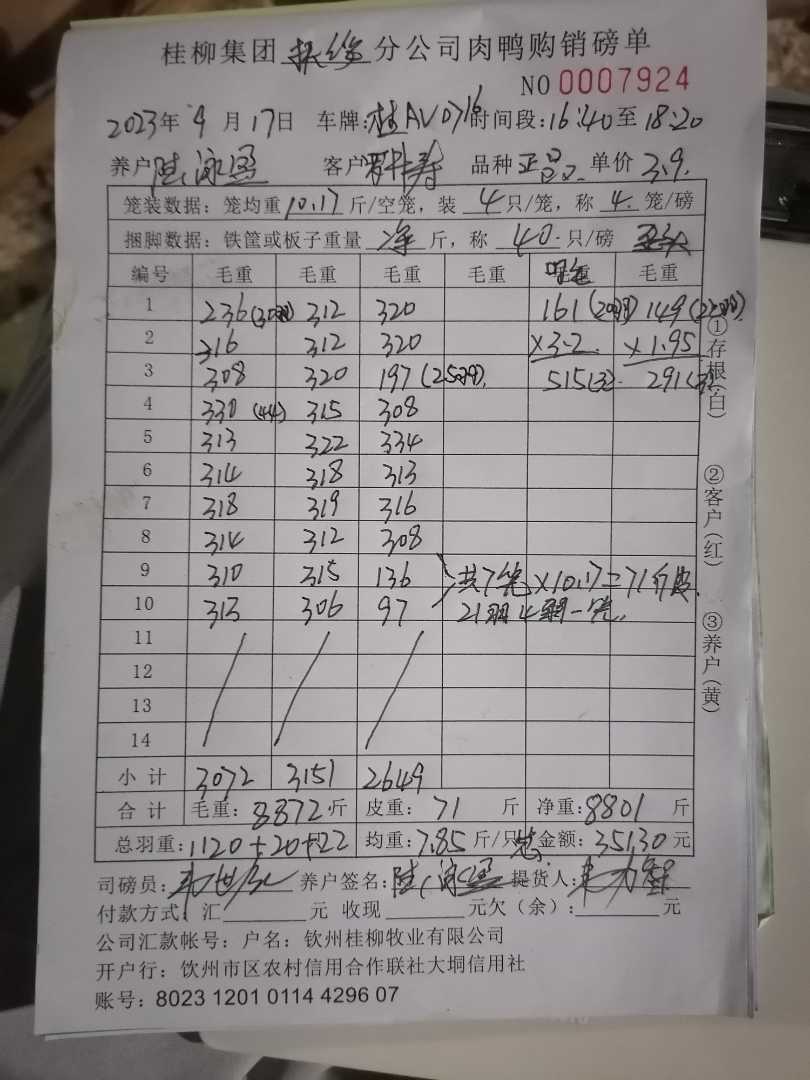 桂柳集团 分公司肉鸭购销磅单
NO 0007924
2023年 4 月 17日 车牌:桂AV0716 时间段:16:40至18:20
养户 陆 客户 寿 品种 单价 3.9.
笼装数据:笼均重 10.17 斤/空笼,装 4 只/笼,称 4 笼/磅
捆脚数据:铁筐或板子重量 净 斤,称 40 只/磅
编号 毛重 毛重 毛重 毛重 毛重 毛重
1 236(30羽) 312 320 161(20羽) 149(22羽).
2 316 312 320 ×3.2 ×1.95
3 308 320 197(25羽). 515(元). 291(元)
4 330(44) 315 308
5 313 322 334
6 314 318 313
7 318 319 316
8 314 312 308
9 310 315 136 共7笼×10.17=71斤皮.
10 313 306 97 21羽 4羽一笼.
11
12
13
14
小计 3072 3151 2649
合计 毛重:8872斤 皮重:71 斤 净重:8801 斤
总羽重:1120+20+22 均重:7.85斤/只 总金额:35130元
司磅员: 养户签名:陆 提货人:
付款方式:汇 元 收现 元欠(余): 元
公司汇款帐号:户名:钦州桂柳牧业有限公司
开户行:饮州市区农村信用合作联社大垌信用社
账号:8023 1201 0114 4296 07
①存根(白)
②客户(红)
③养户(黄)